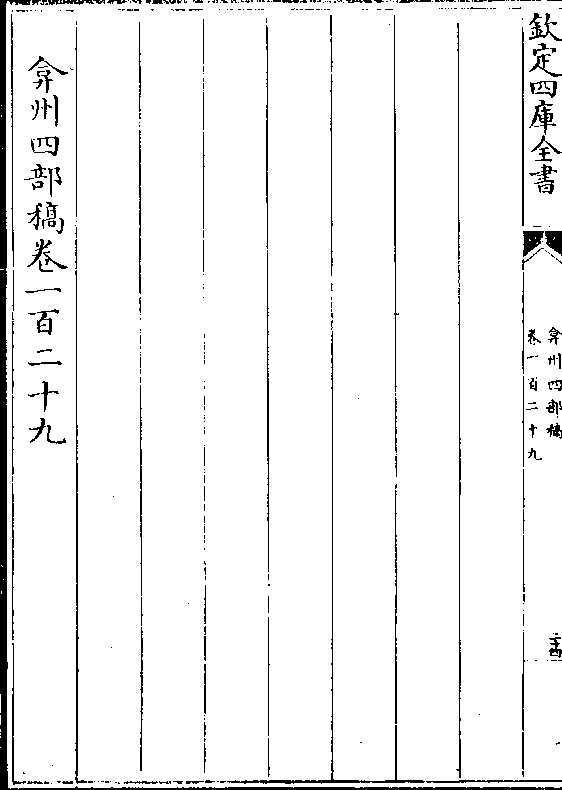 欽定四庫全書
弇州四部稿
卷一百二十九
二十四
弇州四部稿卷一百二十九